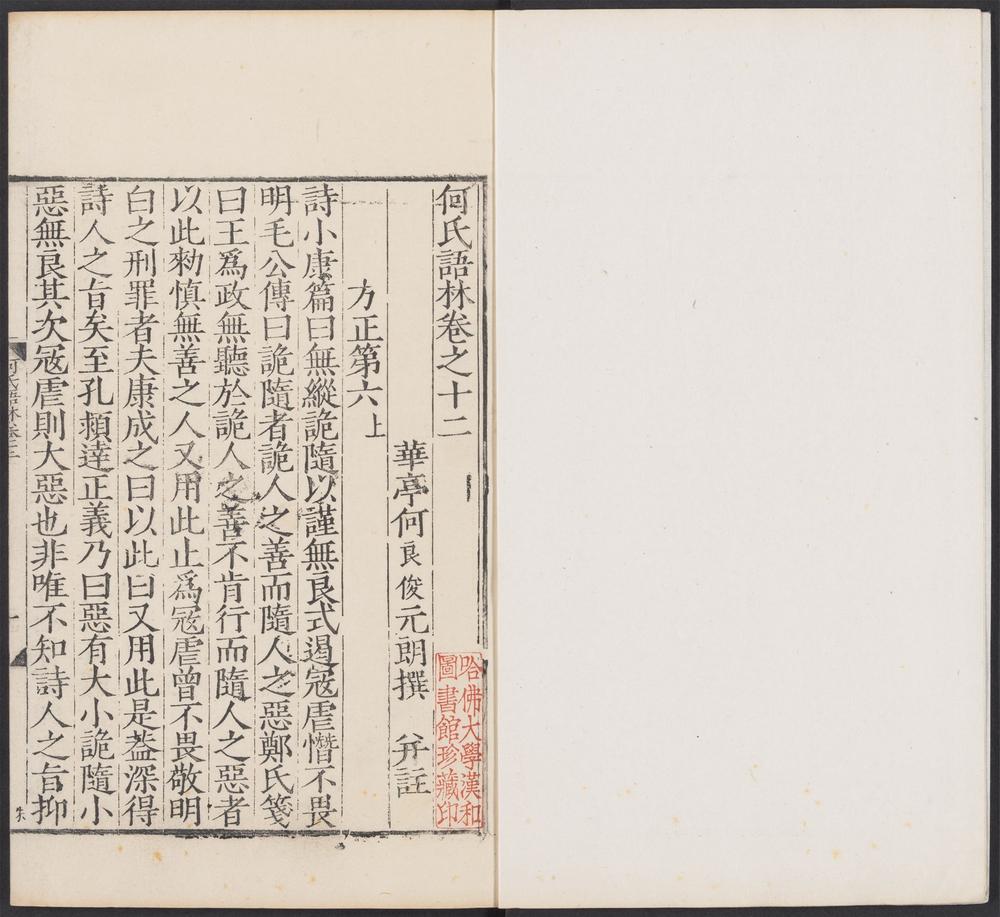 何氏語林卷之十二
華亭何良俊元朗撰 并註
方正第六上
詩小康篇曰無縱詭隨以謹無良式遏寇虐憯不畏
明毛公傳曰詭隨者詭人之善而隨人之惡鄭氏箋
曰王爲政無聽於詭人之善不肯行而隨人之惡者
以此勑慎無善之人又用此止爲寇虐曾不畏敬明
白之刑罪者夫康成之曰以此曰又用此是葢深得
詩人之旨矣至孔頴達正義乃曰惡有大小詭隨小
惡無良其次寇虐則大惡也非唯不知詩人之旨抑
何氏語林卷十二
一
朱
哈佛大學漢和
圖書館珍藏印